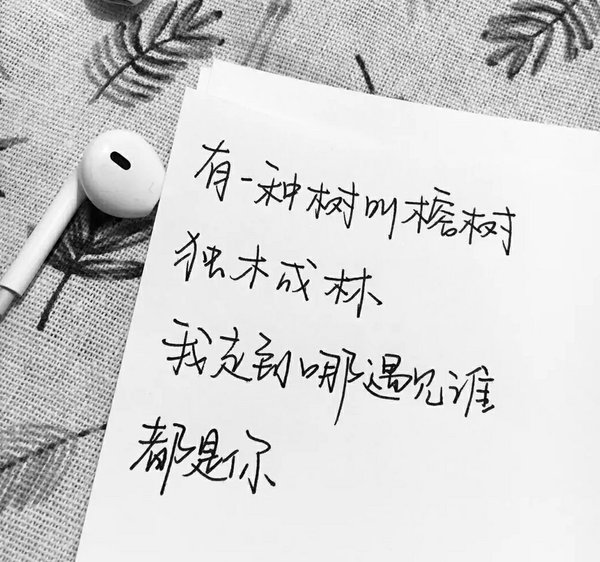 有一种树叫榕树
独木成林
我走到哪遇见谁
都是你